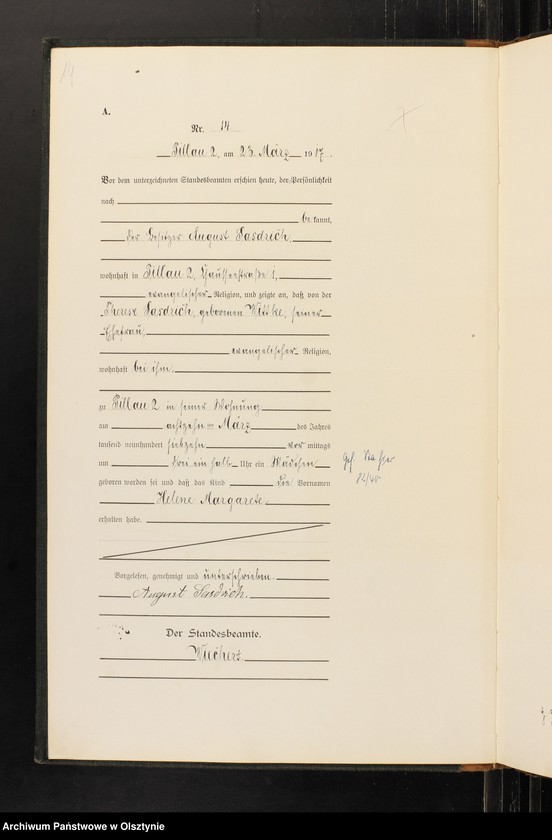 14
A.
Nr. 14
Pillau 2, am 23. März 1917.
Vor dem unterzeichneten Standesbeamten erschien heute, der Persönlichkeit
nach
be kannt,
der Besitzer August Sasdrich,
wohnhaft in Pillau 2, Chausseestraße 1,
evangelischer Religion, und zeigte an, daß von der
Therese Sasdrich, geborenen Wittke, seiner
Ehefrau,
evangelischer Religion,
wohnhaft bei ihm,
zu Pillau 2 in seiner Wohnung
am achtzehn ten März des Jahres
tausend neunhundert siebzehn vor mittags
um drei ein halb Uhr ein Mädchen
geboren worden sei und daß das Kind die Vornamen
Helene Margarete
erhalten habe.
Vorgelesen, genehmigt und unterschrieben.
August Sasdrich.
Der Standesbeamte.
Archiwum Państwowe w Olsztynie